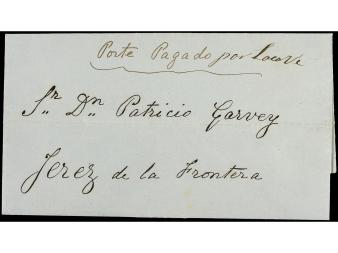 Porte Pagado por
Sr. Dn. Patricio Garvey
Jerez de la Frontera